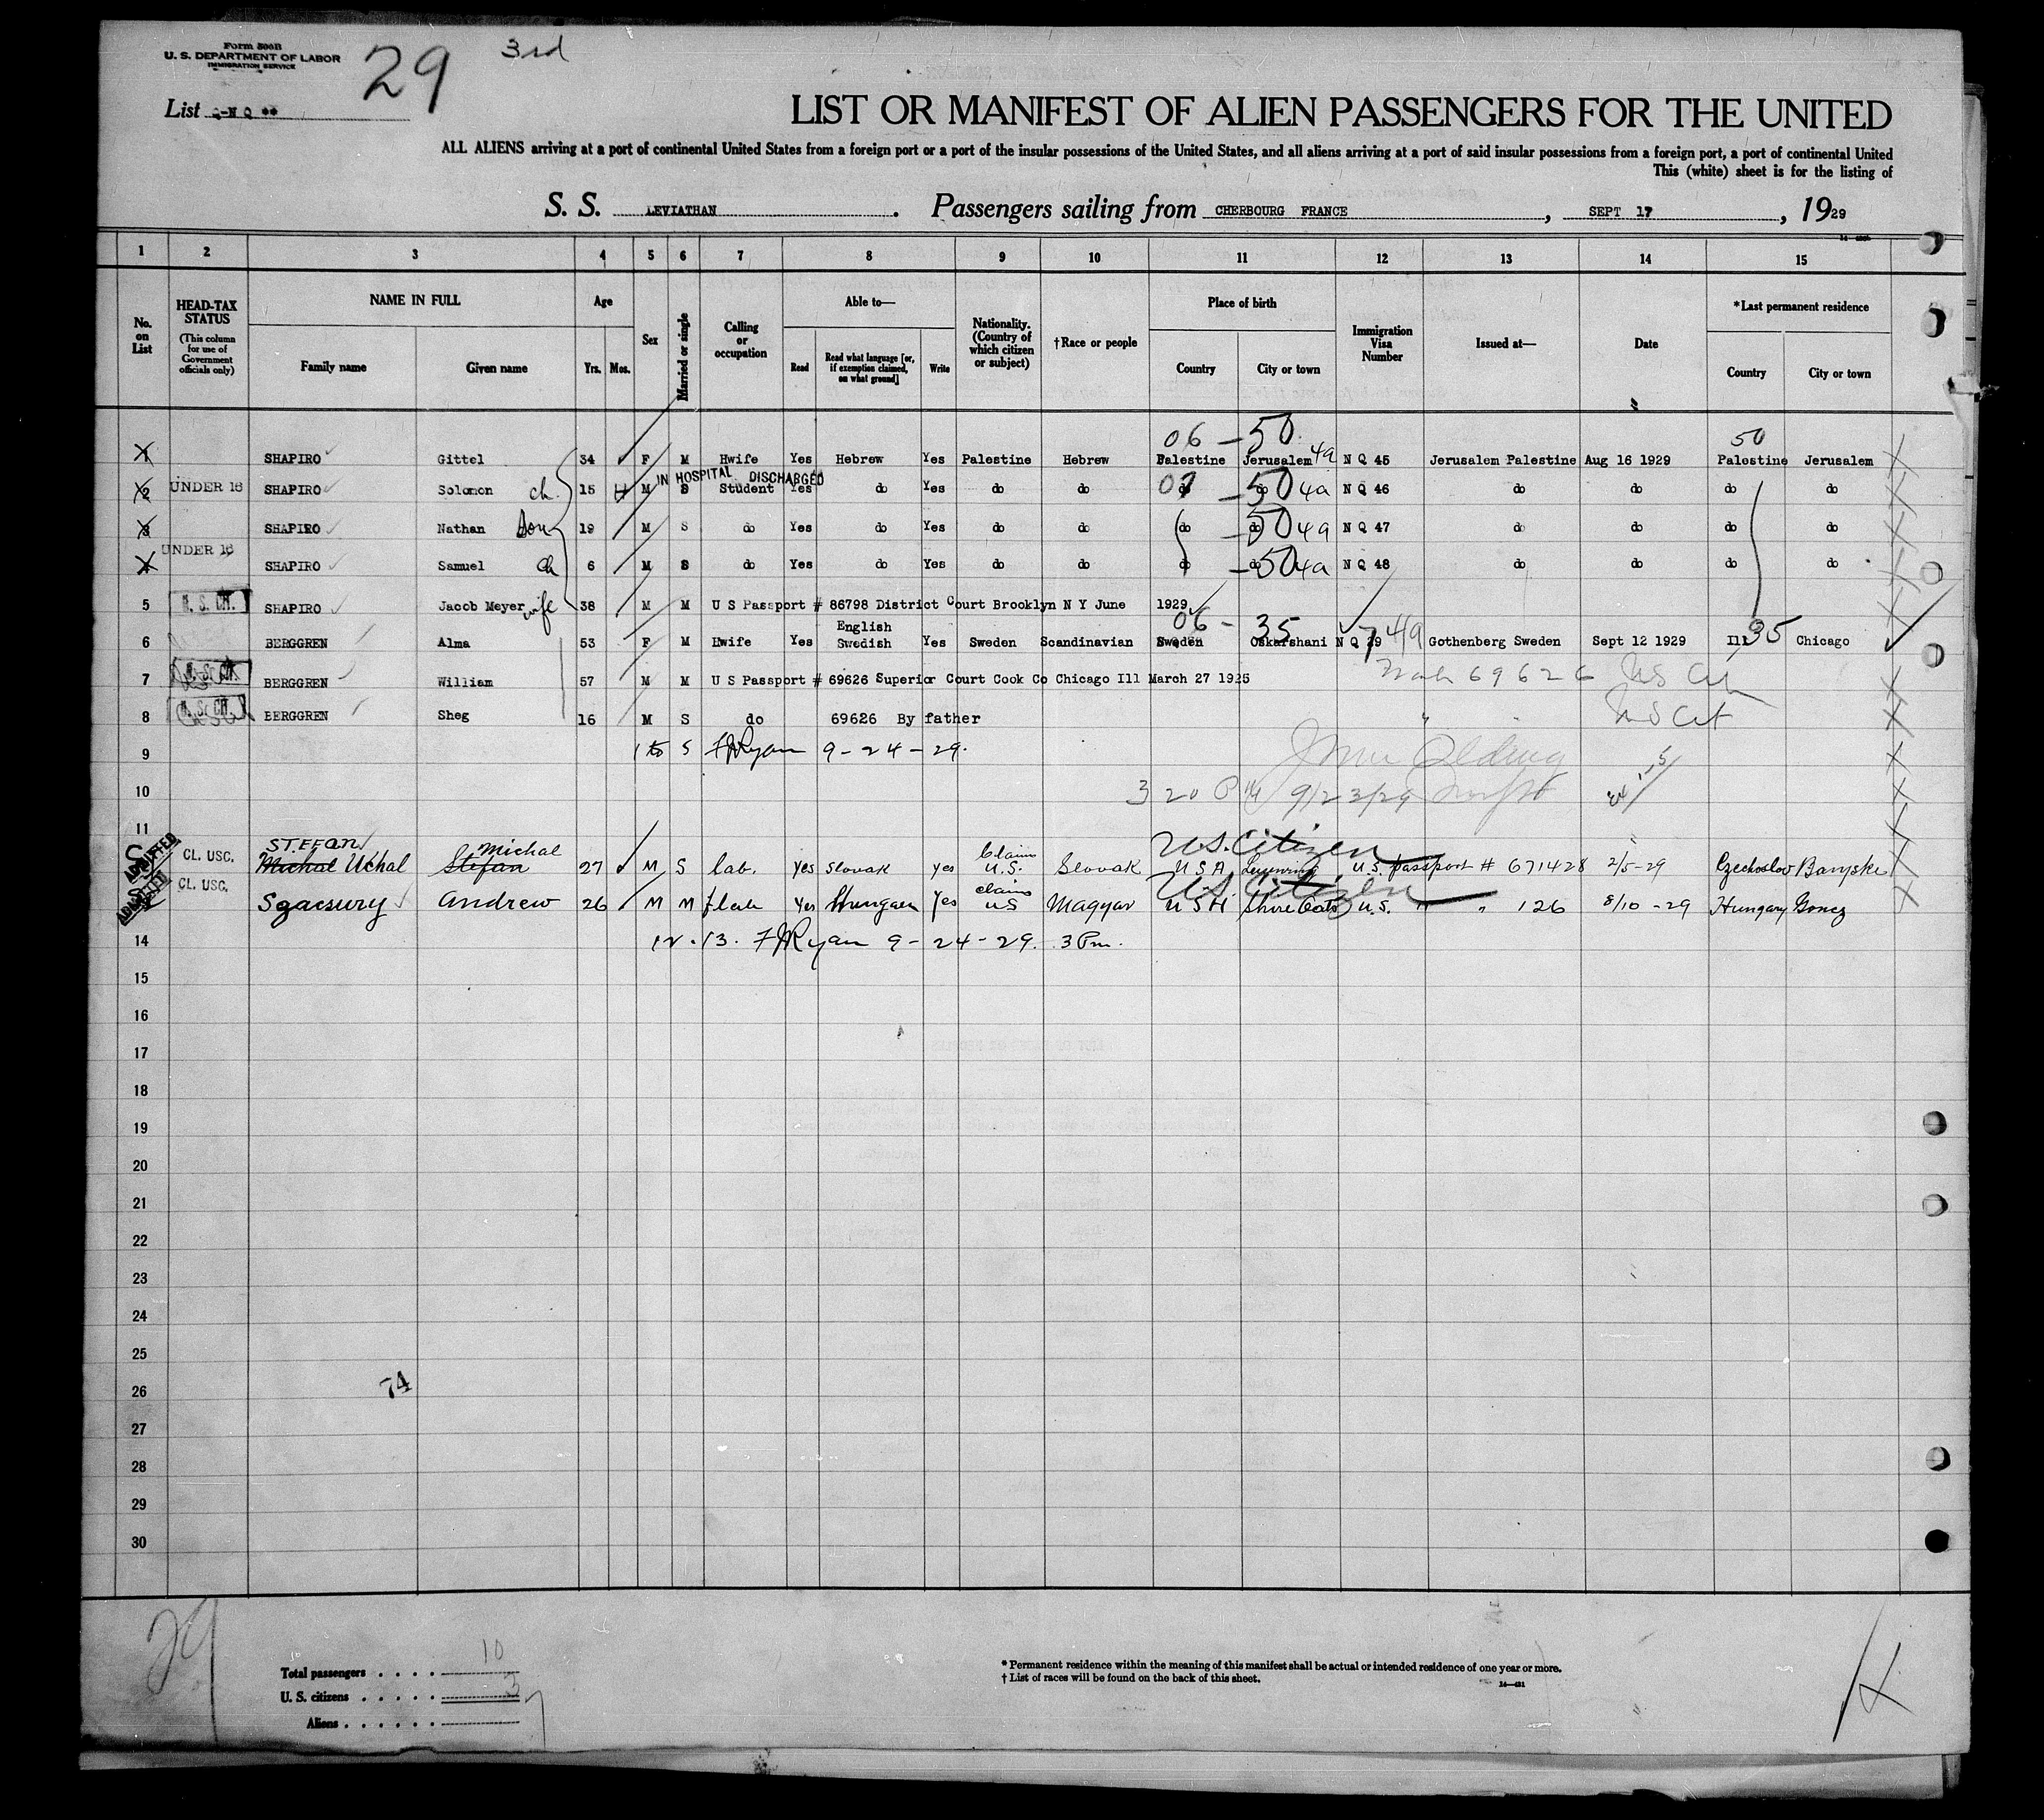 Form 500B
U. S. DEPARTMENT OF LABOR
IMMIGRATION SERVICE
29 3rd
List Q-NQ **
LIST OR MANIFEST OF ALIEN PASSENGERS FOR THE UNITED
ALL ALIENS arriving at a port of continental United States from a foreign port or a port of the insular possessions of the United States, and all aliens arriving at a port of said insular possessions from a foreign port, a port of continental United
This (white) sheet is for the listing of
S. S. LEVIATHAN . Passengers sailing from CHERBOURG FRANCE , SEPT 17 , 1929
1 2 3 4 5 6 7 8 9 10 11 12 13 14 15
No. on List
HEAD-TAX STATUS
(This column for use of Government officials only)
NAME IN FULL
Family name Given name
Age
Yrs. Mos.
Sex
Married or single
Calling or occupation
Able to—
Read
Read what language [or, if exemption claimed, on what ground]
Write
Nationality. (Country of which citizen or subject)
†Race or people
Place of birth
Country City or town
Immigration Visa Number
Issued at—
Date
*Last permanent residence
Country City or town
06 - 50 50
1 SHAPIRO Gittel 34 F M Hwife Yes Hebrew Yes Palestine Hebrew Palestine Jerusalem 4a N Q 45 Jerusalem Palestine Aug 16 1929 Palestine Jerusalem
IN HOSPITAL DISCHARGED
2 UNDER 16 SHAPIRO Solomon ch. 15 M S Student Yes do Yes do do do do 50 4a N Q 46 do do do do
3 SHAPIRO Nathan Son 19 M S do Yes do Yes do do do do 50 4a N Q 47 do do do do
UNDER 16
4 SHAPIRO Samuel Ch 6 M S do Yes do Yes do do do do 50 4a N Q 48 do do do do
5 SHAPIRO Jacob Meyer wife 38 M M U S Passport # 86798 District Court Brooklyn N Y June 1929
English 06 - 35
6 BERGGREN Alma 53 F M Hwife Yes Swedish Yes Sweden Scandinavian Sweden Oskarshani N Q 79 Gothenberg Sweden Sept 12 1929 Ill 35 Chicago
7 BERGGREN William 57 M M U S Passport # 69626 Superior Court Cook Co Chicago Ill March 27 1925 69626 US Cit
8 BERGGREN Sheg 16 M S do 69626 By father US Cit
9 1 to 5 FJRyan 9-24-29.
10 3 20 PM 9/23/29
11
STEFAN Michal Claims U.S. Citizen
ADMITTED CL. USC. Michal Uchal Stefan 27 M S lab. Yes Slovak yes U.S. Slovak USA U.S. Passport # 671428 2/5-29 Czechoslov
claims U.S. Citizen
ADMITTED CL. USC. Sgacsury Andrew 26 M M Yes Yes US Magyar USA U.S. " " 126 8/10-29 Hungary Goncz
14 12.13. FJRyan 9-24-29. 3 Pm.
15
16
17
18
19
20
21
22
23
24
25
26 74
27
28
29
30
29
Total passengers . . . . 10
U. S. citizens . . . . . 3
Aliens . . . . . . 7
* Permanent residence within the meaning of this manifest shall be actual or intended residence of one year or more.
† List of races will be found on the back of this sheet.